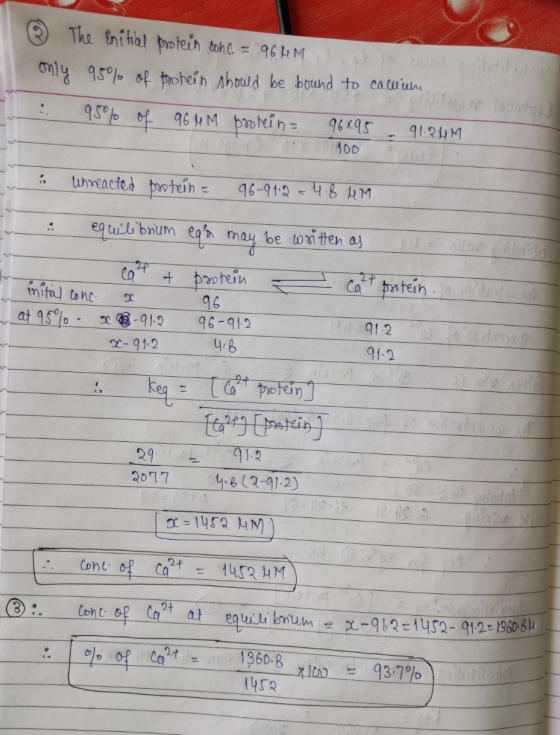 ② The initial protein conc = 96 µM
only 95% of protein should be bound to calcium
∴ 95% of 96 µM protein = 96×95/100 = 91.2 µM
∴ unreacted protein = 96-91.2 = 4.8 µM
∴ equilibrium eqn may be written as
Ca²⁺ + protein ⇌ Ca²⁺ protein.
initial conc. x 96
at 95% - x -91.2 96-91.2 91.2
x-91.2 4.8 91.2
∴ Keq = [Ca²⁺ protein] / [Ca²⁺][protein]
29/2077 = 91.2 / 4.8(x-91.2)
x = 1452 µM
∴ conc. of Ca²⁺ = 1452 µM
③ ∴ conc. of Ca²⁺ at equilibrium = x-91.2 = 1452-91.2 = 1360.8 µ
∴ % of Ca²⁺ = 1360.8/1452 ×100 = 93.7%